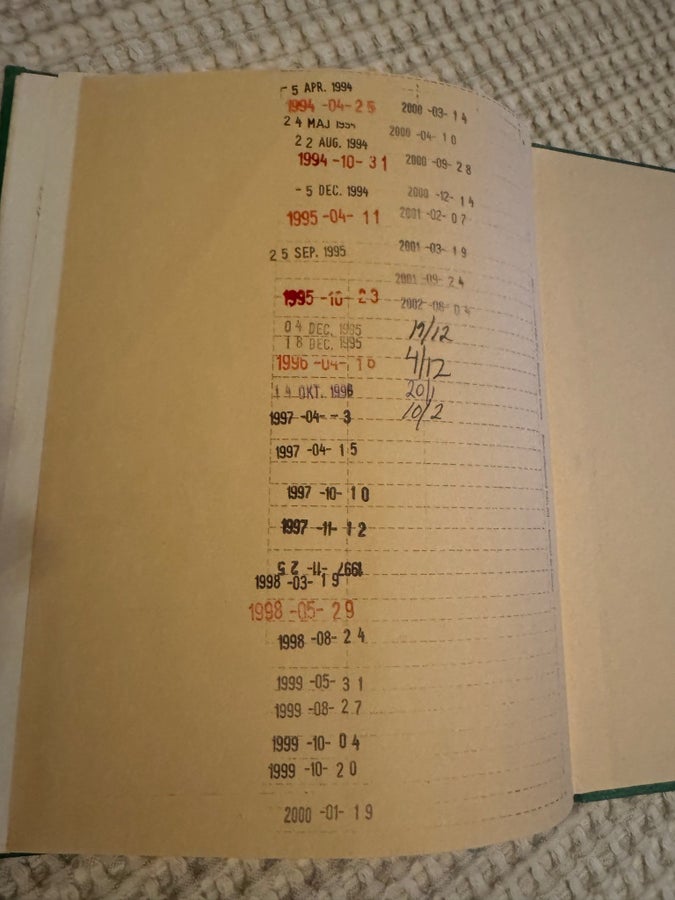 - 5 APR. 1994
1994 -04- 25
24 MAJ 1994
22 AUG. 1994
1994 -10- 31
- 5 DEC. 1994
1995 -04- 11
25 SEP. 1995
1995 -10- 23
04 DEC. 1995
18 DEC. 1995
1996 -04- 16
14 OKT. 1996
1997 -04- - 3
1997 -04- 15
1997 -10- 10
1997 -11- 12
1997 -11- 25
1998 -03- 19
1998 -05- 29
1998 -08- 24
1999 -05- 31
1999 -08- 27
1999 -10- 04
1999 -10- 20
2000 -01- 19
2000 -03- 14
2000 -04- 10
2000 -09- 28
2000 -12- 14
2001 -02- 07
2001 -03- 19
2001 -09- 24
2002 -06- 04
19/12
4/12
20/1
10/2